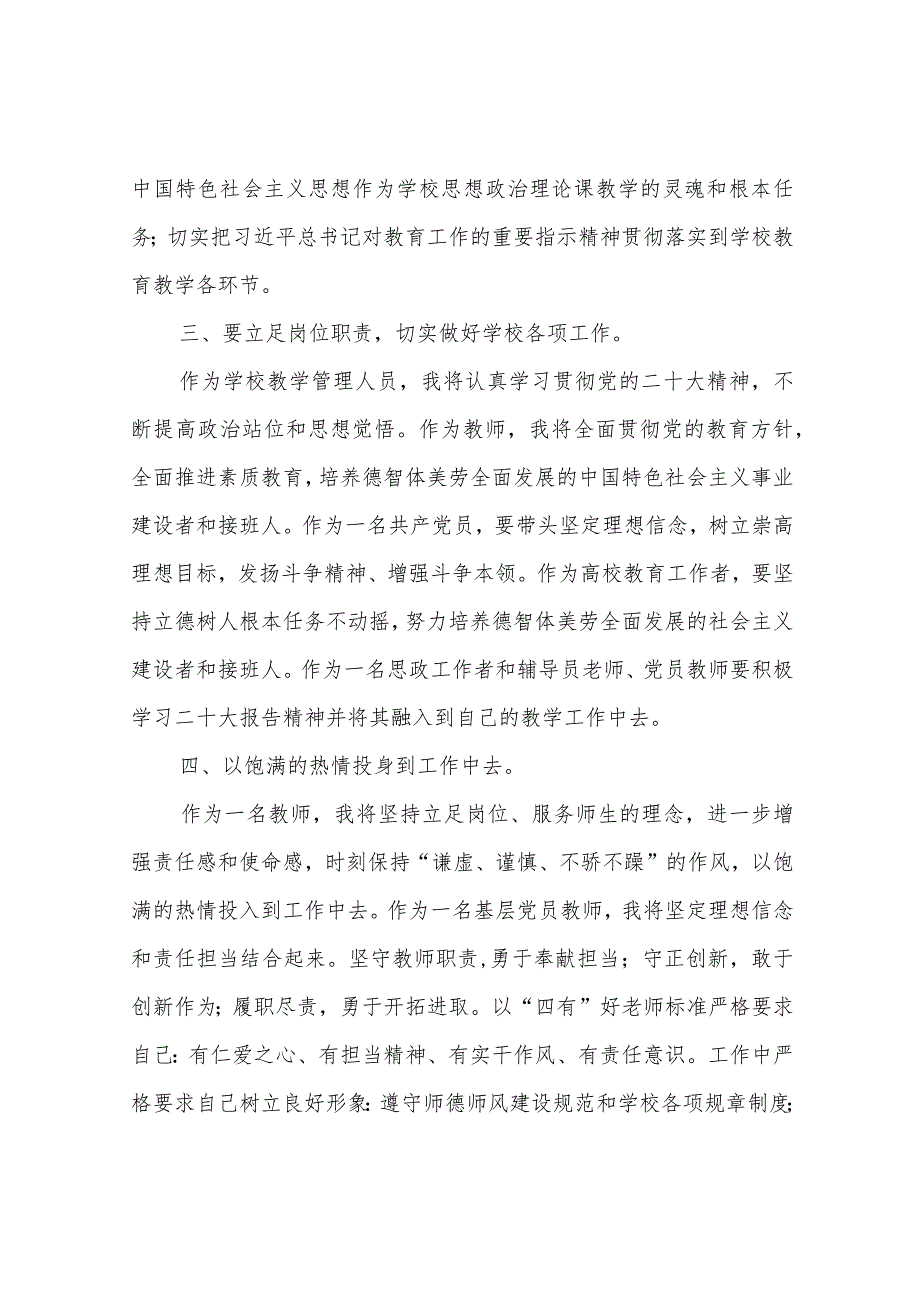 中国特色社会主义思想作为学校思想政治理论课教学的灵魂和根本任
务；切实把习近平总书记对教育工作的重要指示精神贯彻落实到学校教
育教学各环节。
三、要立足岗位职责，切实做好学校各项工作。
作为学校教学管理人员，我将认真学习贯彻党的二十大精神，不
断提高政治站位和思想觉悟。作为教师，我将全面贯彻党的教育方针，
全面推进素质教育，培养德智体美劳全面发展的中国特色社会主义事业
建设者和接班人。作为一名共产党员，要带头坚定理想信念，树立崇高
理想目标，发扬斗争精神、增强斗争本领。作为高校教育工作者，要坚
持立德树人根本任务不动摇，努力培养德智体美劳全面发展的社会主义
建设者和接班人。作为一名思政工作者和辅导员老师、党员教师要积极
学习二十大报告精神并将其融入到自己的教学工作中去。
四、以饱满的热情投身到工作中去。
作为一名教师，我将坚持立足岗位、服务师生的理念，进一步增
强责任感和使命感，时刻保持“谦虚、谨慎、不骄不躁”的作风，以饱
满的热情投入到工作中去。作为一名基层党员教师，我将坚定理想信念
和责任担当结合起来。坚守教师职责,勇于奉献担当；守正创新，敢于
创新作为；履职尽责，勇于开拓进取。以“四有”好老师标准严格要求
自己：有仁爱之心、有担当精神、有实干作风、有责任意识。工作中严
格要求自己树立良好形象：遵守师德师风建设规范和学校各项规章制度；